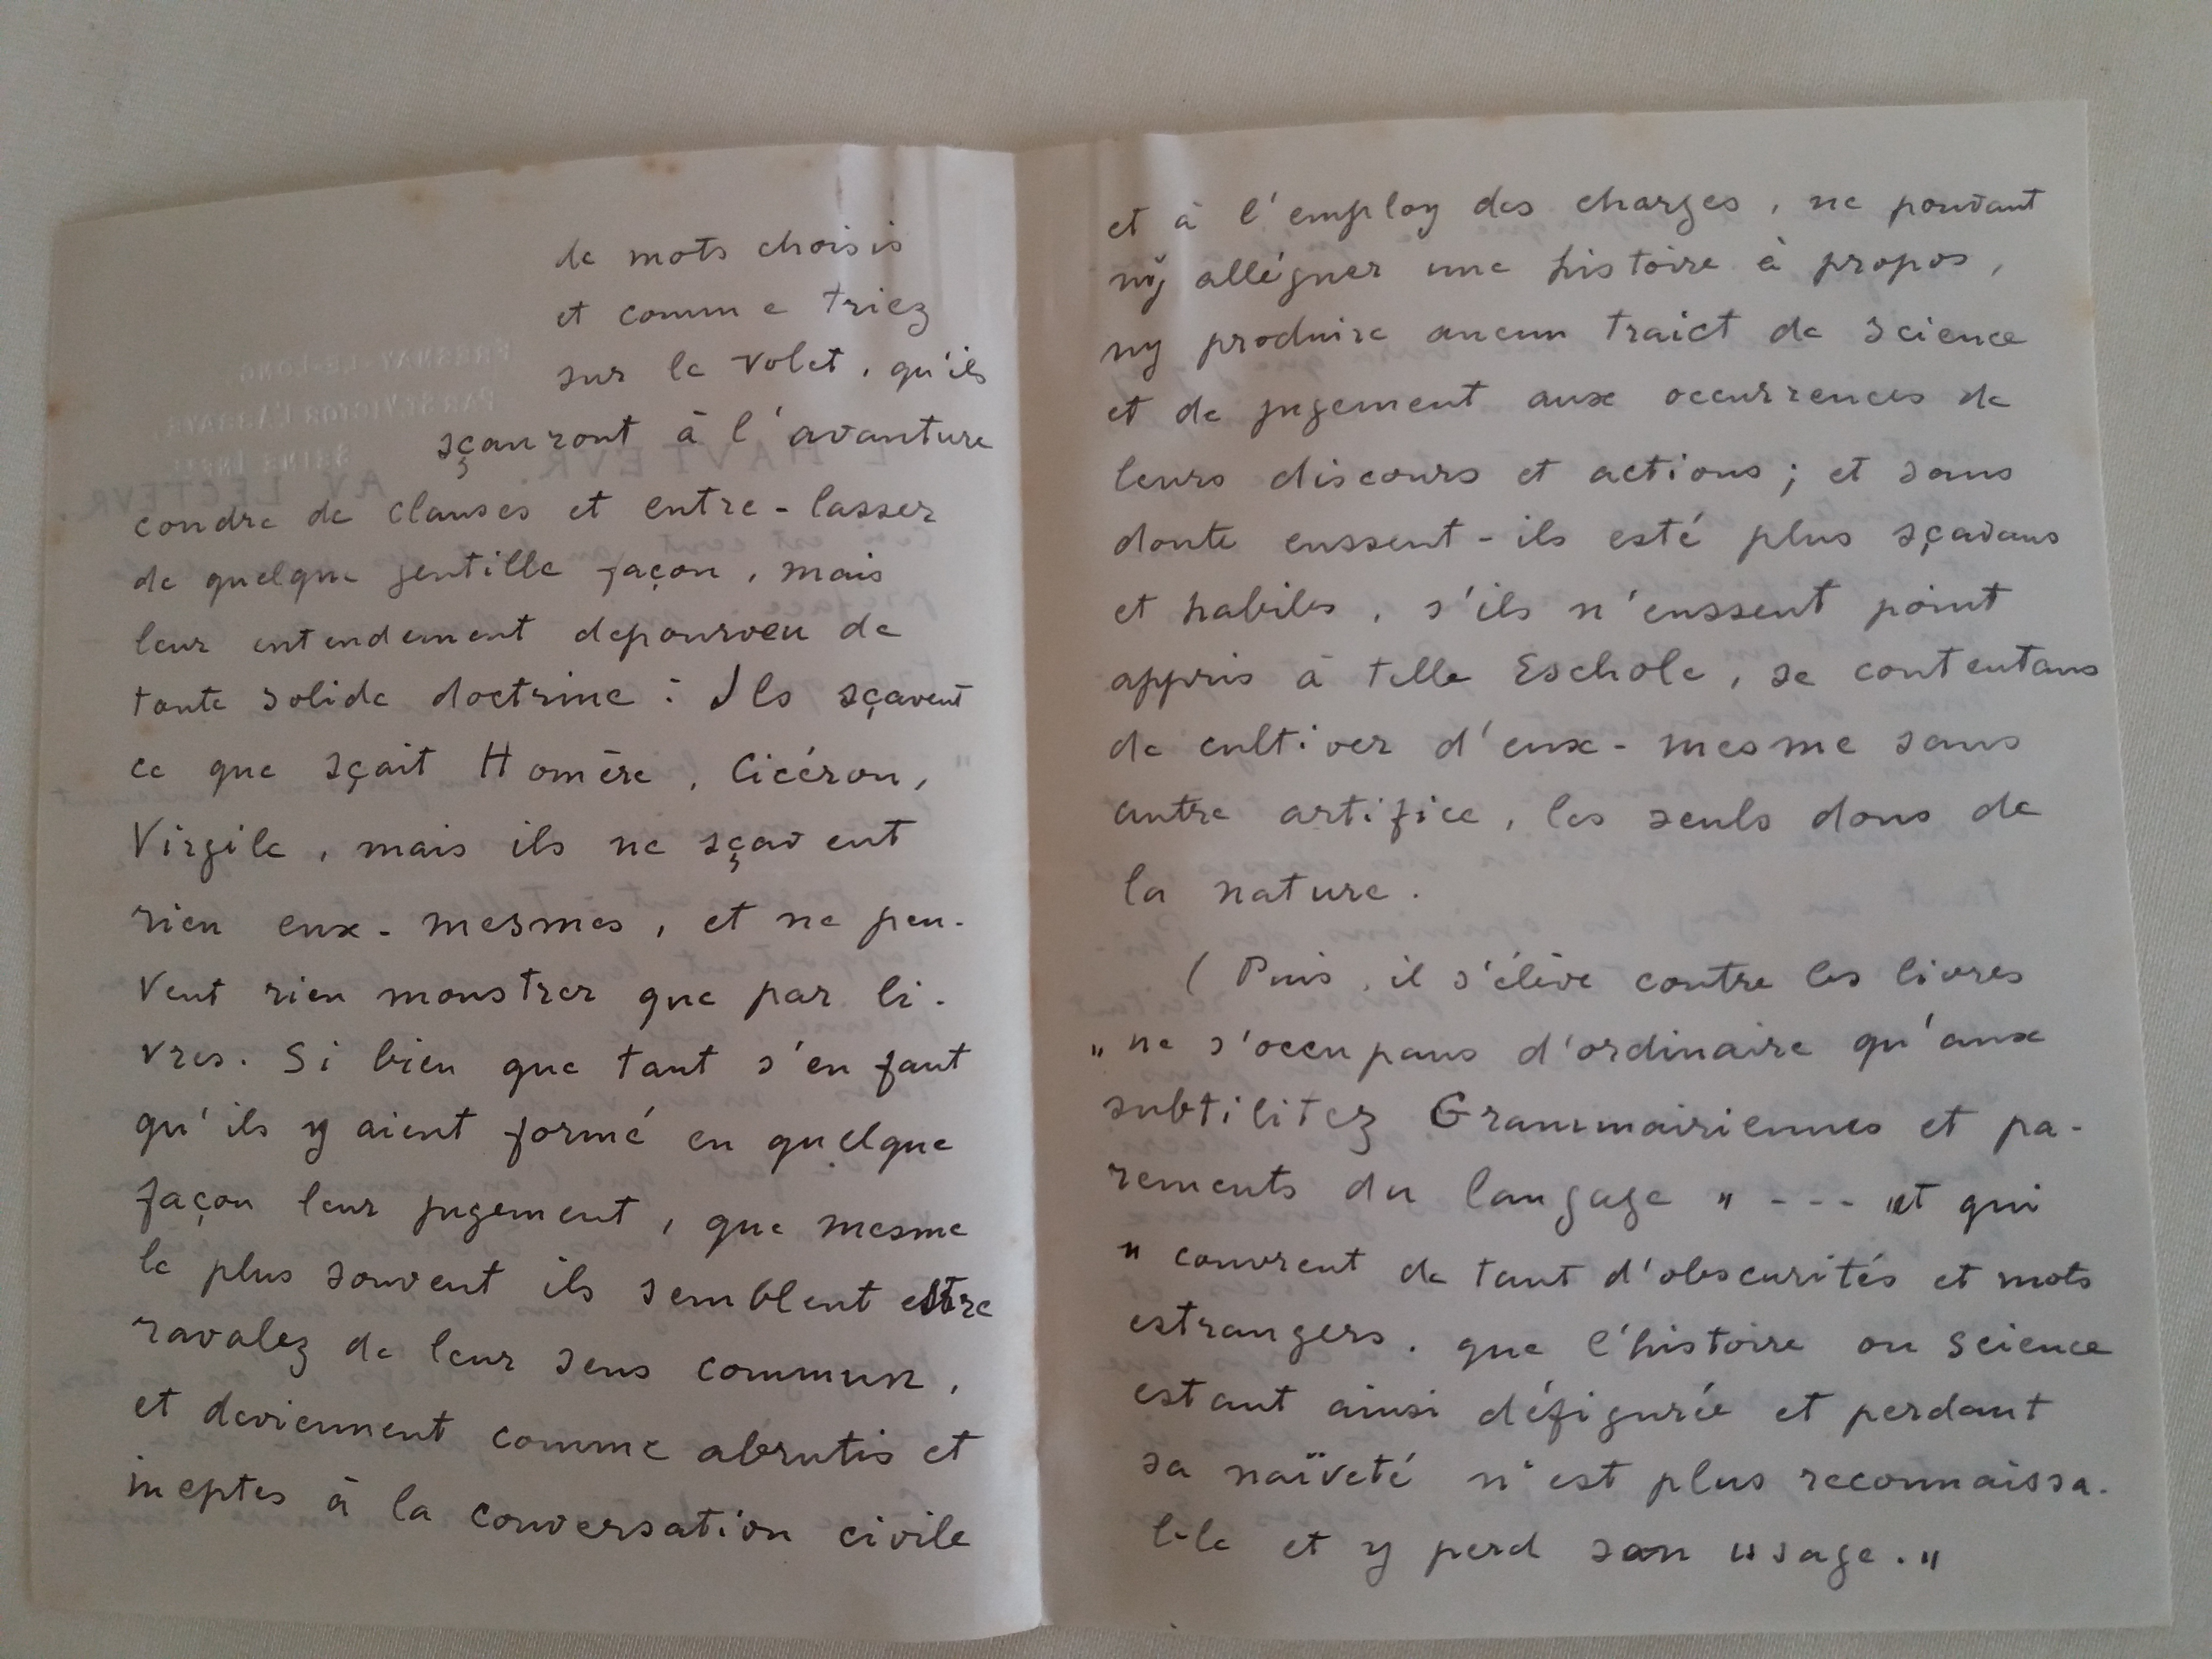 de mots choisis
et comme triez
sur le volet, qu'ils
sçauront à l'avanture
coudre de clauses et entre-lasser
de quelque gentille façon, mais
leur entendement depourveu de
toute solide doctrine : Ils sçavent
ce que sçait Homère, Cicéron,
Virgile, mais ils ne sçavent
rien eux-mesmes, et ne peu-
vent rien monstrer que par li-
vres. Si bien que tant s'en faut
qu'ils y aient formé en quelque
façon leur jugement, que mesme
le plus souvent ils semblent estre
ravalez de leur sens commun,
et deviennent comme abrutis et
ineptes à la conversation civile
et à l'employ des charges, ne pouvant
ny alléguer une histoire à propos,
ny produire aucun traict de science
et de jugement aux occurrences de
leurs discours et actions; et sans
doute eussent-ils esté plus sçavans
et habiles, s'ils n'eussent point
appris à telle Eschole, se contentans
de cultiver d'eux-mesme sans
autre artifice, les seuls dons de
la nature.
(Puis, il s'élève contre les livres
"ne s'occupans d'ordinaire qu'aux
subtilitez Grammairiennes et pa-
rements du langage" --- et qui
"couvrent de tant d'obscurités et mots
estrangers, que l'histoire ou science
estant ainsi défigurée et perdant
sa naïveté n'est plus reconnaissa-
ble et y perd son usage."
FRESNAY-LE-LONG
PAR St VICTOR L'ABBAYE
L'HAVTEVR
AV LECTEVR.